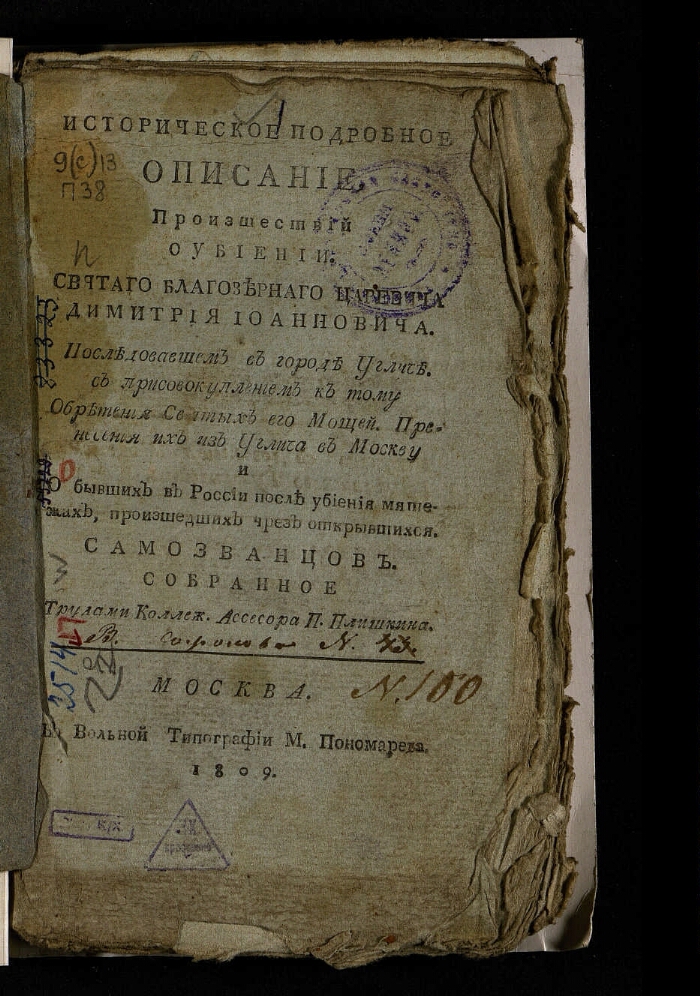 ИСТОРИЧЕСКОЕ ПОДРОБНОЕ
9(с)13
П38
ОПИСАНІЕ
Произшествій
ОУБІЕНІИ
п
СВЯТАГО БЛАГОВѢРНАГО ЦАРЕВИЧА
ДИМИТРІЯ ІОАННОВИЧА.
Послѣдовавшемъ въ городѣ Угличѣ.
съ присовокупленіемъ къ тому
Обрѣтенія Святыхъ его Мощей. Пре-
несенія ихъ изъ Углича въ Москву
и
О бывшихъ въ Россіи послѣ убіенія мяте-
жахъ, произшедшихъ чрезъ открывшихся.
САМОЗВАНЦОВЪ.
СОБРАННОЕ
Трудами Коллеж. Ассесора П. Плишкина.
N. 43.
МОСКВА.
N. 100
Въ Вольной Типографіи М. Пономарева.
1809.